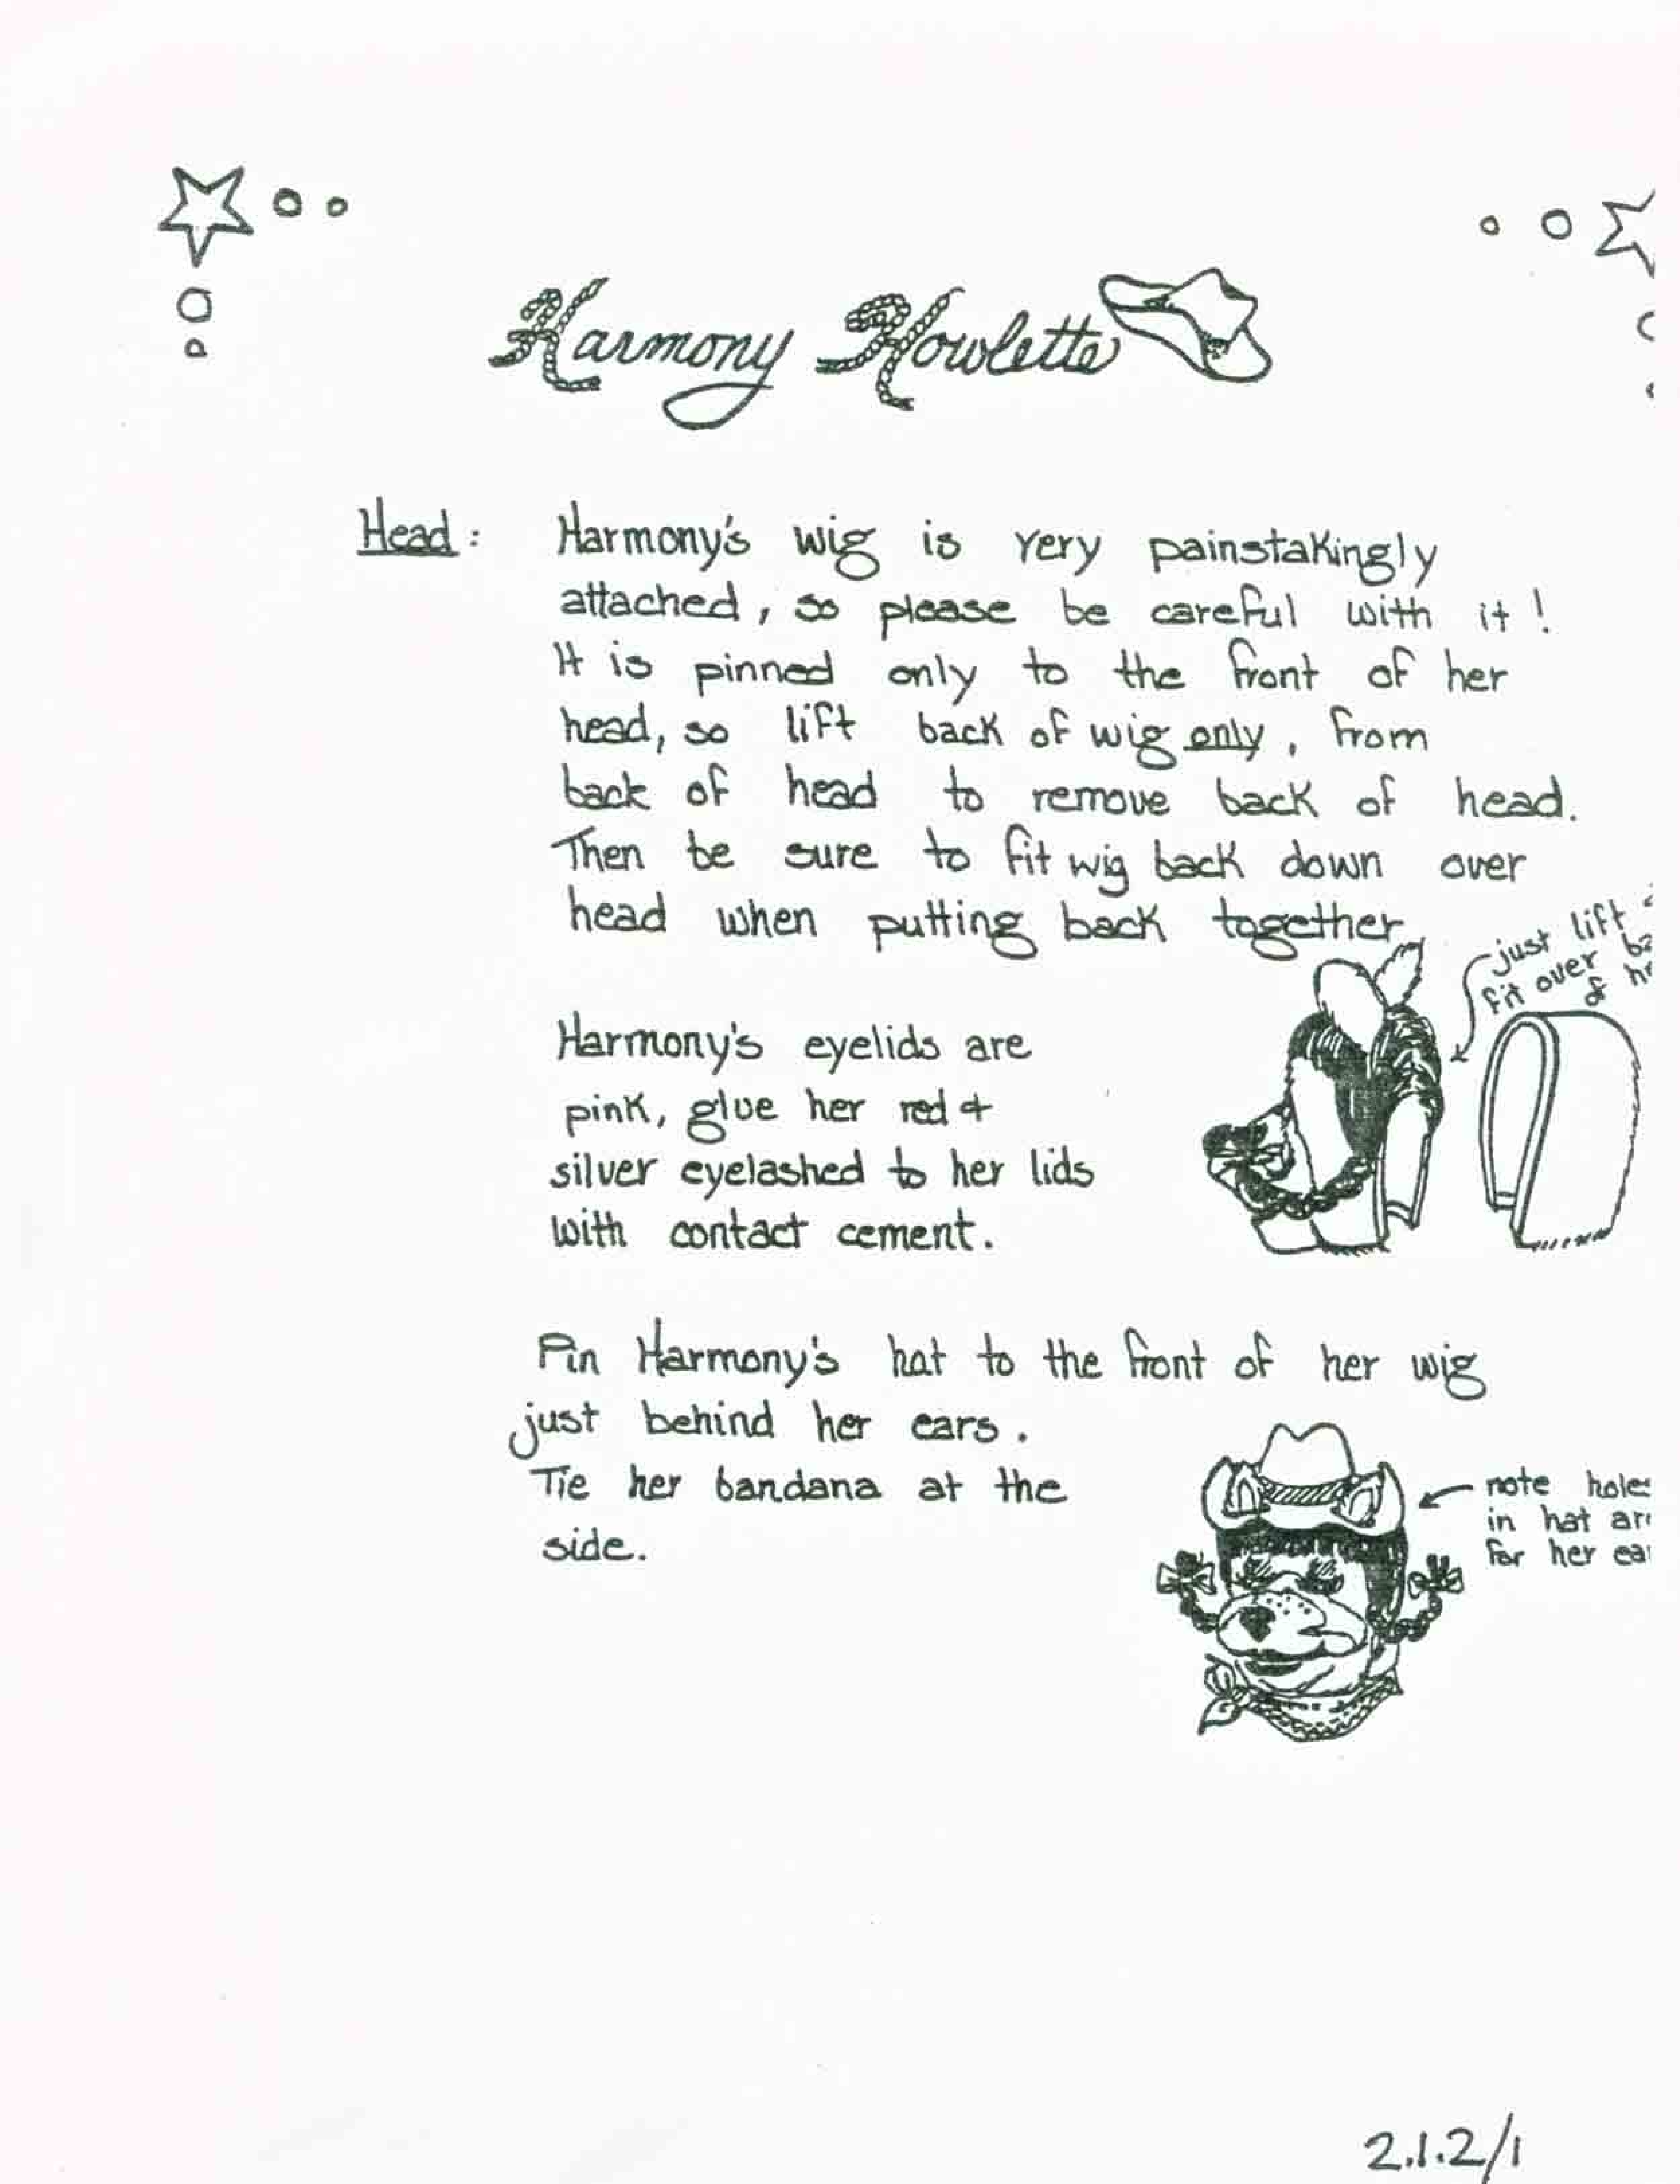 Harmony Howlette
Head: Harmony's wig is very painstakingly
attached, so please be careful with it!
It is pinned only to the front of her
head, so lift back of wig only, from
back of head to remove back of head.
Then be sure to fit wig back down over
head when putting back together
just lift
fit over
&
Harmony's eyelids are
pink, glue her red &
silver eyelashed to her lids
with contact cement.
Pin Harmony's hat to the front of her wig
just behind her ears.
Tie her bandana at the
side.
note
in hat
for her
2.1.2/1